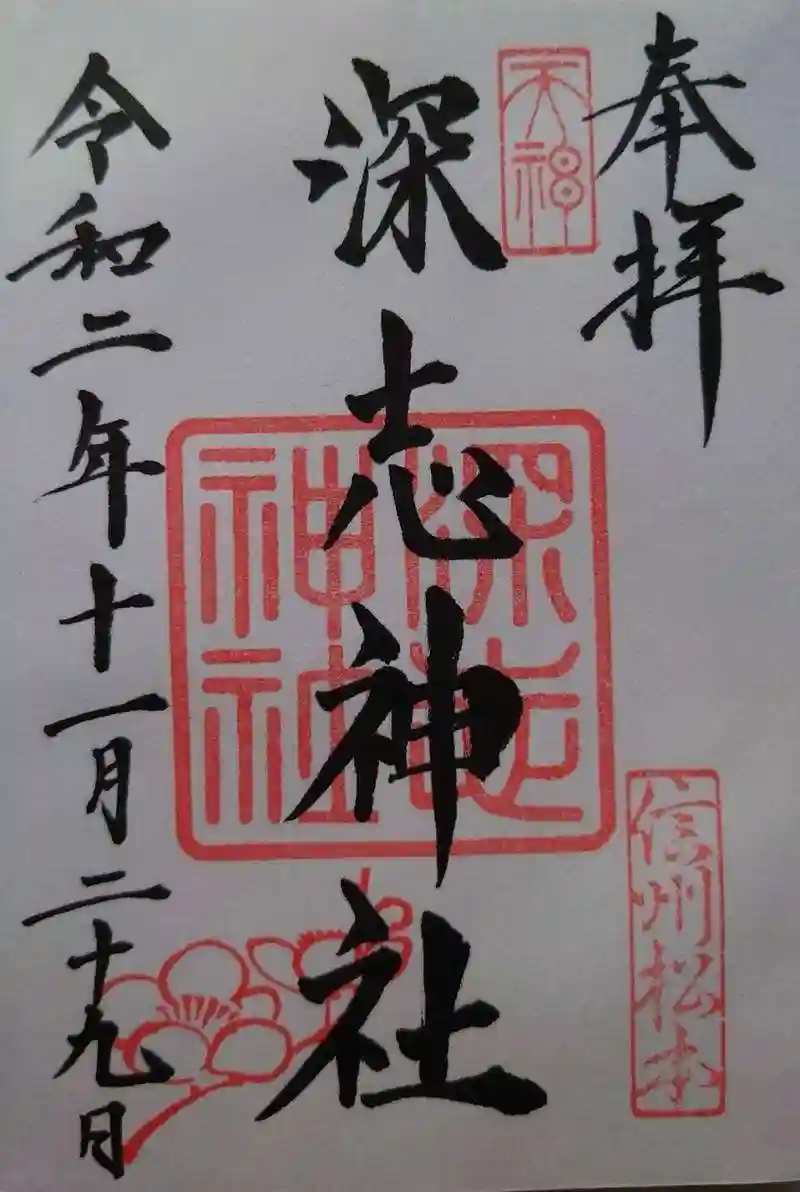 奉拝
天神
信州松本
深志神社
深志神社
令和二年十一月二十九日